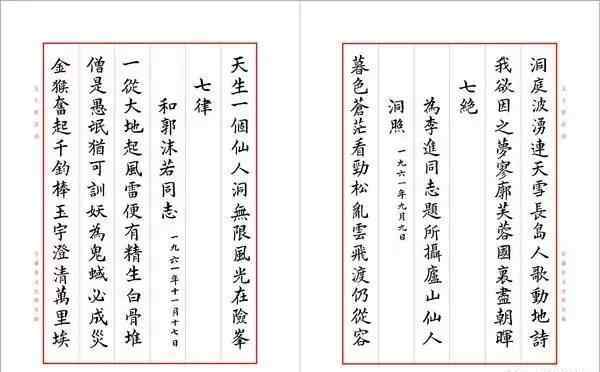 洞庭波湧連天雪長島人歌動地詩
我欲因之夢寥廓芙蓉國裏盡朝暉
七絶
為李進同志題所攝廬山仙人
洞照 一九六一年九月九日
暮色蒼茫看勁松亂雲飛渡仍從容
天生一個仙人洞無限風光在險峯
七律
和郭沫若同志 一九六一年十一月十七日
一從大地起風雷便有精生白骨堆
僧是愚氓猶可訓妖為鬼蜮必成災
金猴奮起千鈞棒玉宇澄清萬里埃